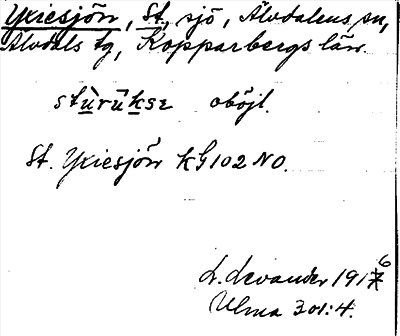 Yxiesjön, St., sjö, Älvdalens sn,
Älvdals tg, Kopparbergs län.
stùrūksɛ oböjl.
St. Yxiesjön KG 102 NO.
L. Levander 1916
Ulma 301:4.